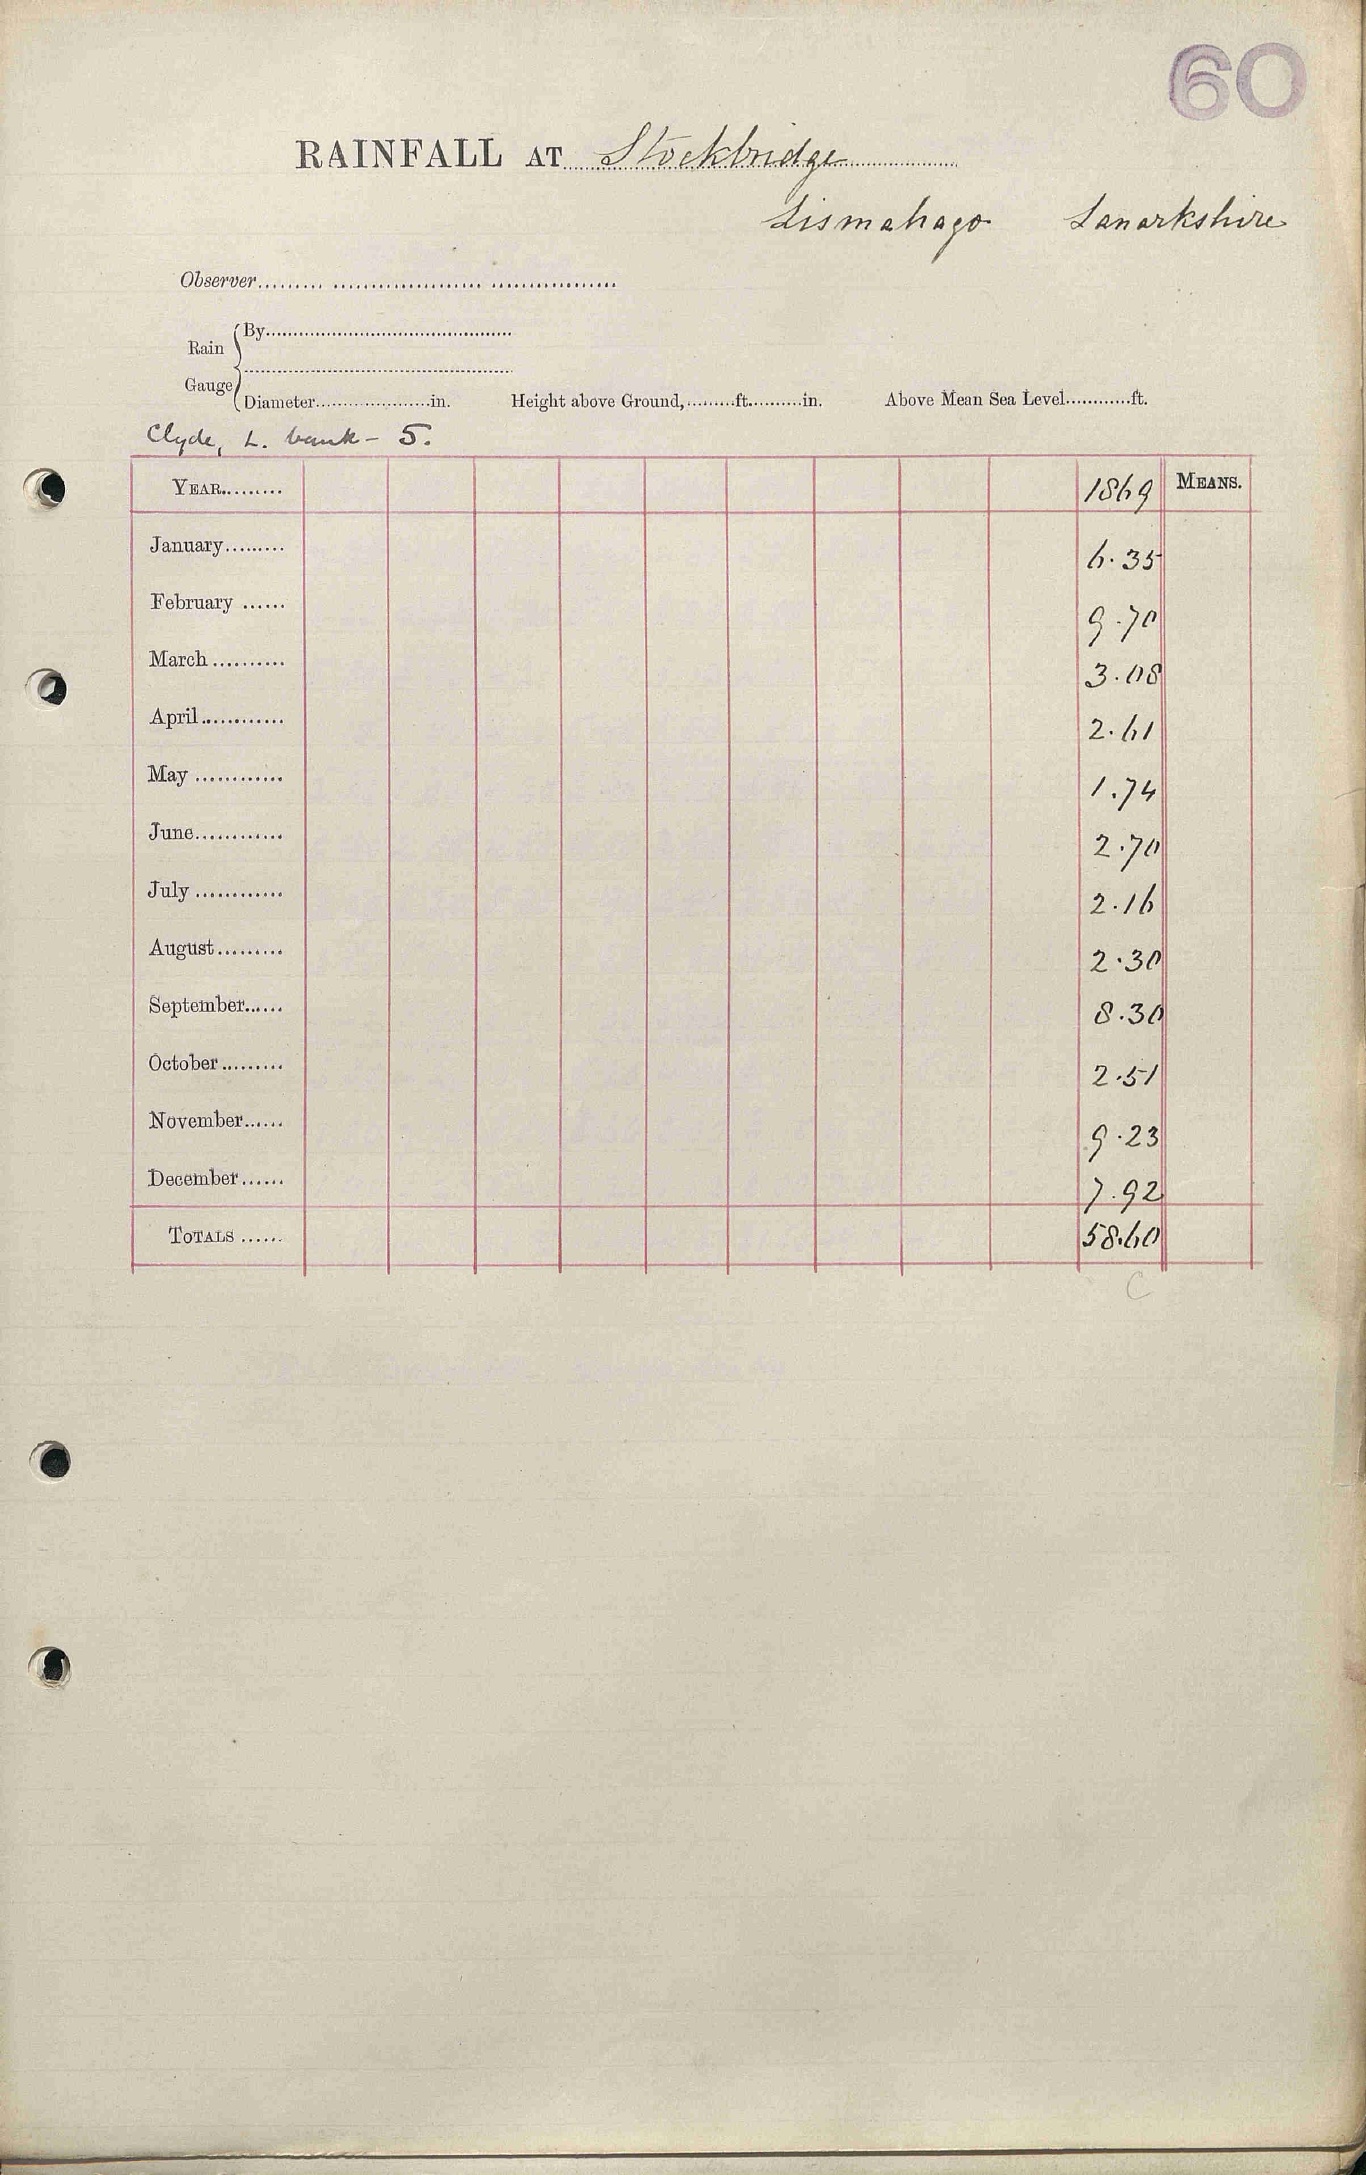 60
RAINFALL AT Stockbridge
Lismahago Lanarkshire
Observer
Rain Gauge
By
Diameter in. Height above Ground, ft. in. Above Mean Sea Level ft.
Clyde, L. bank - 5.
YEAR 1869 MEANS.
January 6.35
February 9.70
March 3.08
April 2.61
May 1.74
June 2.70
July 2.16
August 2.30
September 8.30
October 2.51
November 9.23
December 7.92
TOTALS 58.60
C